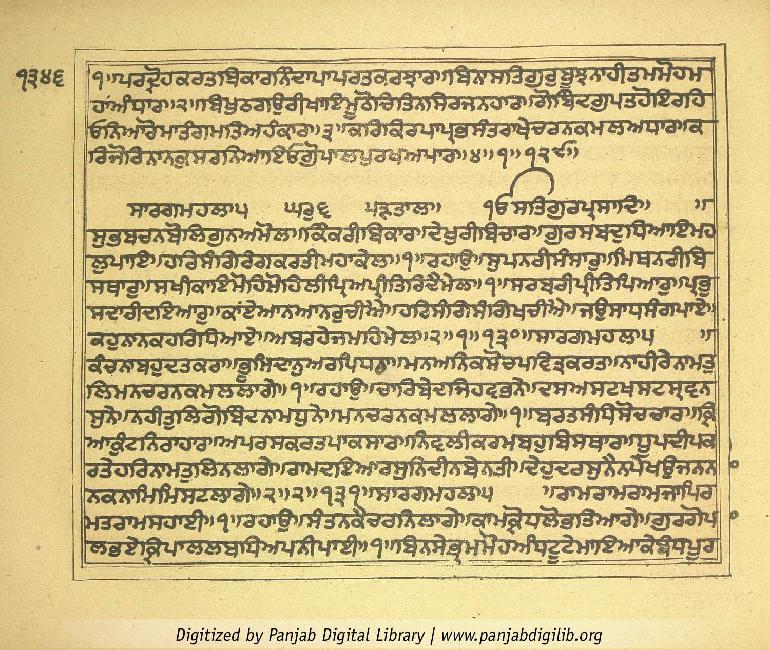 ੧੩੪੬
੧॥ਪਰਦ੍ਰੋਹਕਰਤਬਿਕਾਰਨਿੰਦਾਪਾਪਰਤਕਰਝਾਰ॥ਬਿਨਾਸਤਿਗੁਰਬੂਝਨਾਹੀਤਮਮੋਹਮ
ਹਾਂਅੰਧਾਰ॥੨॥ਬਿਖੁਠਗਉਰੀਖਾਇਮੂਠੋਚਿਤਿਨਸਿਰਜਨਹਾਰ॥ਗੋਬਿੰਦਗੁਪਤਹੋਇਰਹਿ
ਓਨਿਆਰੋਮਾਤੰਗਮਤਿਅਹੰਕਾਰ॥੩॥ਕਰਿਕ੍ਰਿਪਾਪ੍ਰਭਸੰਤਰਾਖੇਚਰਨਕਮਲਅਧਾਰ॥ਕ
ਰਿਜੋਰਿਨਾਨਕੁਸਰਨਿਆਇਓਗੋੁਪਾਲਪੁਰਖਅਪਾਰ॥੪॥੧॥੧੨੯॥
ਸਾਰਗਮਹਲਾ੫ ਘਰੁ੬ ਪੜਤਾਲ॥ ੴਸਤਿਗੁਰਪ੍ਰਸਾਦਿ॥ ॥
ਸੁਭਬਚਨਬੋਲਿਗੁਨਅਮੋਲ॥ਕਿੰਕਰੀਬਿਕਾਰ॥ਦੇਖੁਰੀਬੀਚਾਰ॥ਗੁਰਸਬਦੁਧਿਆਇਮਹ
ਲੁਪਾਇ॥ਹਰਿਸੰਗਿਰੰਗਕਰਤੀਮਹਾਕੇਲ॥੧॥ਰਹਾਉ॥ਸੁਪਨਰੀਸੰਸਾਰੁ॥ਮਿਥਨਰੀਬਿ
ਸਥਾਰੁ॥ਸਖੀਕਾਇਮੋਹਿਮੋਹਿਲੀਪ੍ਰਿਅਪ੍ਰੀਤਿਰਿਦੈਮੇਲ॥੧॥ਸਰਬਰੀਪ੍ਰੀਤਿਪਿਆਰੁ॥ਪ੍ਰਭੁ
ਸਦਾਰੀਦਇਆਰੁ॥ਕਾਂਏਆਨਆਨਰੁਚੀਐ॥ਹਰਿਸੰਗਿਸੰਗਿਖਚੀਐ॥ਜਉਸਾਧਸੰਗਪਾਏ॥
ਕਹੁਨਾਨਕਹਰਿਧਿਆਏ॥ਅਬਰਹੇਜਮਹਿਮੇਲ॥੨॥੧॥੧੩੦॥ਸਾਰਗਮਹਲਾ੫ ॥
ਕੰਚਨਾਬਹੁਦਤਕਰਾ॥ਭੂਮਿਦਾਨੁਅਰਪਿਧਰਾ॥ਮਨਅਨਿਕਸੋਚਪਵਿਤ੍ਰਕਰਤ॥ਨਾਹੀਰੇਨਾਮਤੁ
ਲਿਮਨਚਰਨਕਮਲਲਾਗੇ॥੧॥ਰਹਾਉ॥ਚਾਰਿਬੇਦਜਿਹਵਭਨੇ॥ਦਸਅਸਟਖਸਟਸ੍ਰਵਨ
ਸੁਨੇ॥ਨਹੀਤੁਲਿਗੋਬਿਦਨਾਮਧੁਨੇ॥ਮਨਚਰਨਕਮਲਲਾਗੇ॥੧॥ਬਰਤਸੰਧਿਸੋਚਚਾਰ॥ਕ੍ਰਿ
ਆਕੁੰਟਨਿਰਾਹਾਰ॥ਅਪਰਸਕਰਤਪਾਕਸਾਰ॥ਨਿਵਲੀਕਰਮਬਹੁਬਿਸਥਾਰ॥ਧੂਪਦੀਪਕ
ਰਤੇਹਰਿਨਾਮਤੁਲਿਨਲਾਗੇ॥ਰਾਮਦਇਆਰਸੁਨਿਦੀਨਬੇਨਤੀ॥ਦੇਹੁਦਰਸੁਨੈਨਪੇਖਉਜਨਨਾ
ਨਕਨਾਮਮਿਸਟਲਾਗੇ॥੨॥੨॥੧੩੧॥ਸਾਰਗਮਹਲਾ੫ ॥ਰਾਮਰਾਮਰਾਮਜਾਪਿਰ
ਮਤਰਾਮਸਹਾਈ॥੧॥ਰਹਾਉ॥ਸੰਤਨਕੈਚਰਨਲਾਗੇ॥ਕਾਮਕ੍ਰੋਧਲੋਭਤਿਆਗੇ॥ਗੁਰਗੋਪਾ
ਲਭਏਕ੍ਰਿਪਾਲਲਬਧਿਅਪਨੀਪਾਈ॥੧॥ਬਿਨਸੇਭ੍ਰਮਮੋਹਅੰਧਟੂਟੇਮਾਇਆਕੇਬੰਧਪੂਰ
Digitized by Panjab Digital Library | www.panjabdigilib.org